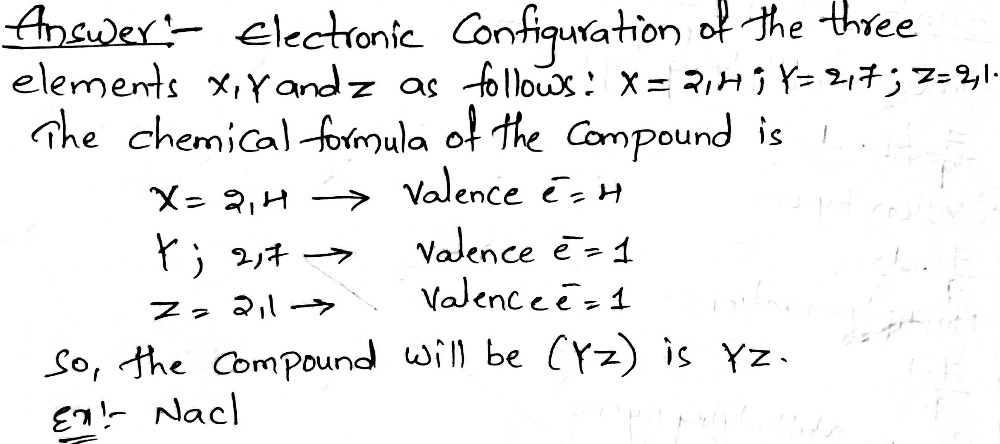 Answer:- Electronic Configuration of the three
elements X,Y and Z as follows: X = 2,4; Y = 2,7; Z=2,1.
The chemical formula of the Compound is
X = 2,4 → Valence e̅ = 4
Y; 2,7 → Valence e̅ = 1
Z = 2,1 → Valence e̅ = 1
So, the Compound will be (YZ) is YZ.
Ex:- Nacl